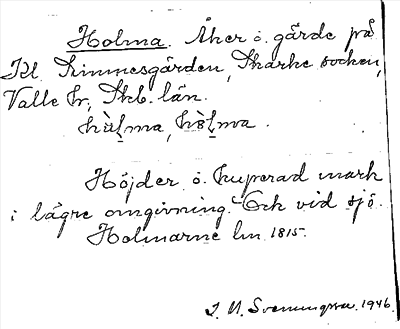 Holma. Åker o. gärde på
Kl. Simmesgården, Skarke socken,
Valle hr, Skb. län.
hùl̥ma, hò̀l̥ma.
Höjder o. kuperad mark
i lägre omgivning. Ock vid sjö.
Holmarne lm 1815.
1946.